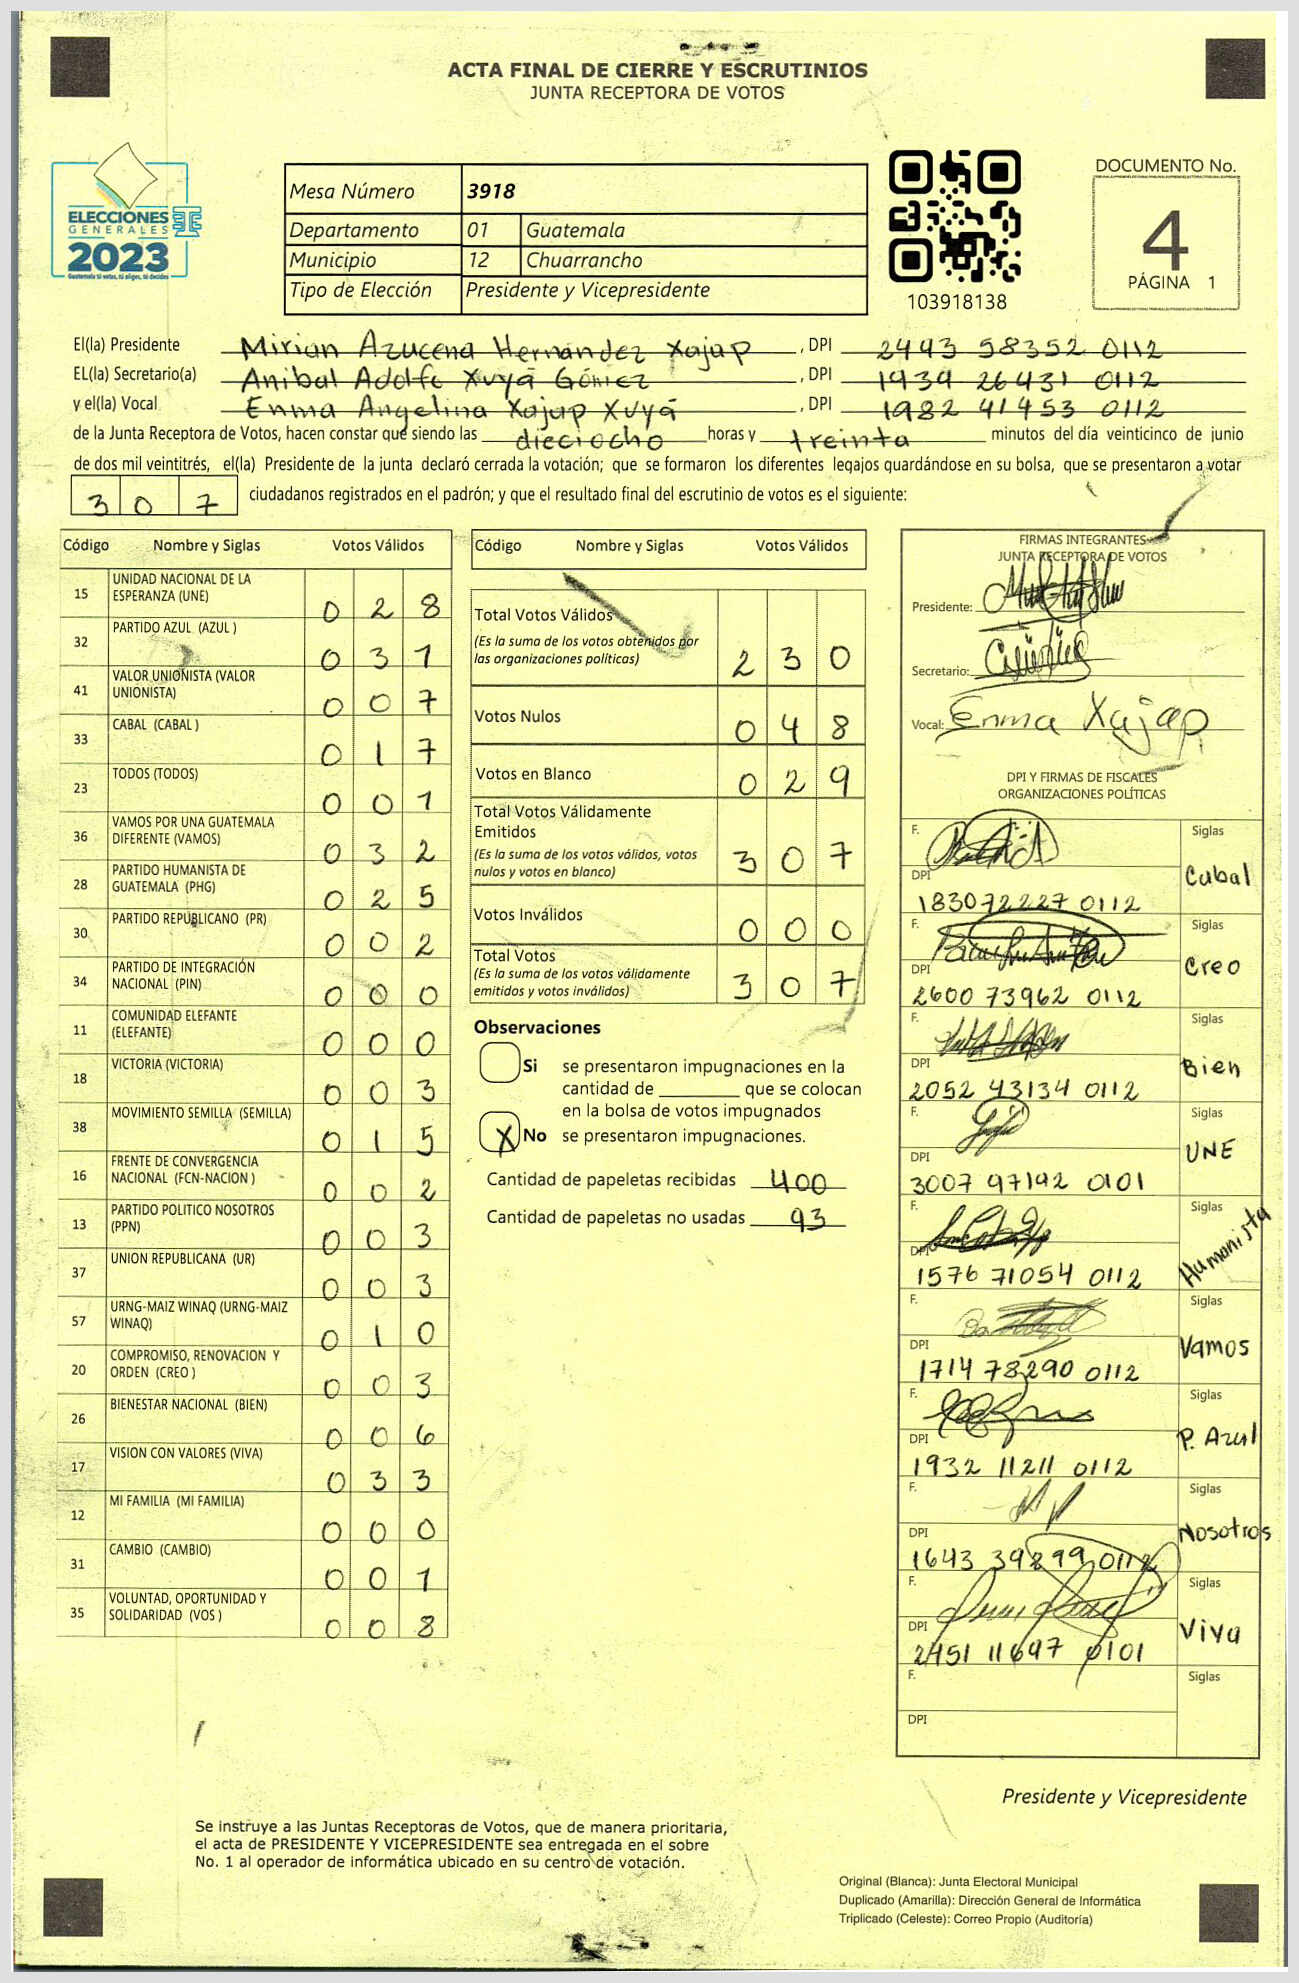 ACTA FINAL DE CIERRE Y ESCRUTINIOS
JUNTA RECEPTORA DE VOTOS
ELECCIONES
GENERALES
2023
Guatemala tú votas, tú eliges, tú decides
Mesa Número 3918
Departamento 01 Guatemala
Municipio 12 Chuarrancho
Tipo de Elección Presidente y Vicepresidente
103918138
DOCUMENTO No.
4
PÁGINA 1
El(la) Presidente Mirian Azucena Hernandez Xajap , DPI 2443 58352 0112
EL(la) Secretario(a) Anibal Adolfo Xuyá Gómez , DPI 1939 26431 0112
y el(la) Vocal Enma Angelina Xajap Xuyá , DPI 1982 41453 0112
de la Junta Receptora de Votos, hacen constar que siendo las dieciocho horas y treinta minutos del día veinticinco de junio
de dos mil veintitrés, el(la) Presidente de la junta declaró cerrada la votación; que se formaron los diferentes legajos guardándose en su bolsa, que se presentaron a votar
307 ciudadanos registrados en el padrón; y que el resultado final del escrutinio de votos es el siguiente:
Código Nombre y Siglas Votos Válidos
15 UNIDAD NACIONAL DE LA ESPERANZA (UNE) 0 2 8
32 PARTIDO AZUL (AZUL ) 0 3 1
41 VALOR UNIONISTA (VALOR UNIONISTA) 0 0 7
33 CABAL (CABAL ) 0 1 7
23 TODOS (TODOS) 0 0 1
36 VAMOS POR UNA GUATEMALA DIFERENTE (VAMOS) 0 3 2
28 PARTIDO HUMANISTA DE GUATEMALA (PHG) 0 2 5
30 PARTIDO REPUBLICANO (PR) 0 0 2
34 PARTIDO DE INTEGRACIÓN NACIONAL (PIN) 0 0 0
11 COMUNIDAD ELEFANTE (ELEFANTE) 0 0 0
18 VICTORIA (VICTORIA) 0 0 3
38 MOVIMIENTO SEMILLA (SEMILLA) 0 1 5
16 FRENTE DE CONVERGENCIA NACIONAL (FCN-NACION ) 0 0 2
13 PARTIDO POLITICO NOSOTROS (PPN) 0 0 3
37 UNION REPUBLICANA (UR) 0 0 3
57 URNG-MAIZ WINAQ (URNG-MAIZ WINAQ) 0 1 0
20 COMPROMISO, RENOVACION Y ORDEN (CREO ) 0 0 3
26 BIENESTAR NACIONAL (BIEN) 0 0 6
17 VISION CON VALORES (VIVA) 0 3 3
12 MI FAMILIA (MI FAMILIA) 0 0 0
31 CAMBIO (CAMBIO) 0 0 1
35 VOLUNTAD, OPORTUNIDAD Y SOLIDARIDAD (VOS ) 0 0 8
Código Nombre y Siglas Votos Válidos
Total Votos Válidos
(Es la suma de los votos obtenidos por
las organizaciones políticas) 2 3 0
Votos Nulos 0 4 8
Votos en Blanco 0 2 9
Total Votos Válidamente
Emitidos
(Es la suma de los votos válidos, votos
nulos y votos en blanco) 3 0 7
Votos Inválidos 0 0 0
Total Votos
(Es la suma de los votos válidamente
emitidos y votos inválidos) 3 0 7
Observaciones
Si se presentaron impugnaciones en la
cantidad de ________ que se colocan
en la bolsa de votos impugnados
X No se presentaron impugnaciones.
Cantidad de papeletas recibidas 400
Cantidad de papeletas no usadas 93
FIRMAS INTEGRANTES
JUNTA RECEPTORA DE VOTOS
Presidente:
Secretario:
Vocal: Enma Xajap
DPI Y FIRMAS DE FISCALES
ORGANIZACIONES POLÍTICAS
F. Siglas
DPI Cabal
183072227 0112
F. Siglas
DPI Creo
2600 73962 0112
F. Siglas
DPI Bien
2052 43134 0112
F. Siglas
DPI UNE
3007 97192 0101
F. Siglas
DPI Humanista
1576 71054 0112
F. Siglas
DPI Vamos
1714 78290 0112
F. Siglas
DPI P. Azul
1932 11211 0112
F. Siglas
DPI Nosotros
1643 39299 0112
F. Siglas
DPI Viva
2451 11697 0101
F. Siglas
DPI
Presidente y Vicepresidente
Se instruye a las Juntas Receptoras de Votos, que de manera prioritaria,
el acta de PRESIDENTE Y VICEPRESIDENTE sea entregada en el sobre
No. 1 al operador de informática ubicado en su centro de votación.
Original (Blanca): Junta Electoral Municipal
Duplicado (Amarilla): Dirección General de Informática
Triplicado (Celeste): Correo Propio (Auditoría)